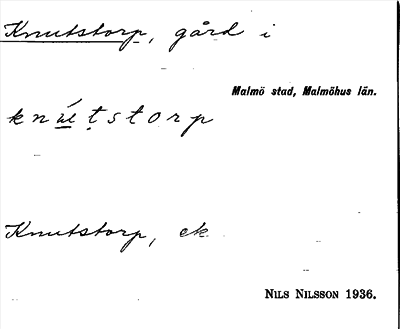 Knutstorp, gård i
Malmö stad, Malmöhus län.
knútstorp
Knutstorp, ek.
Nils Nilsson 1936.